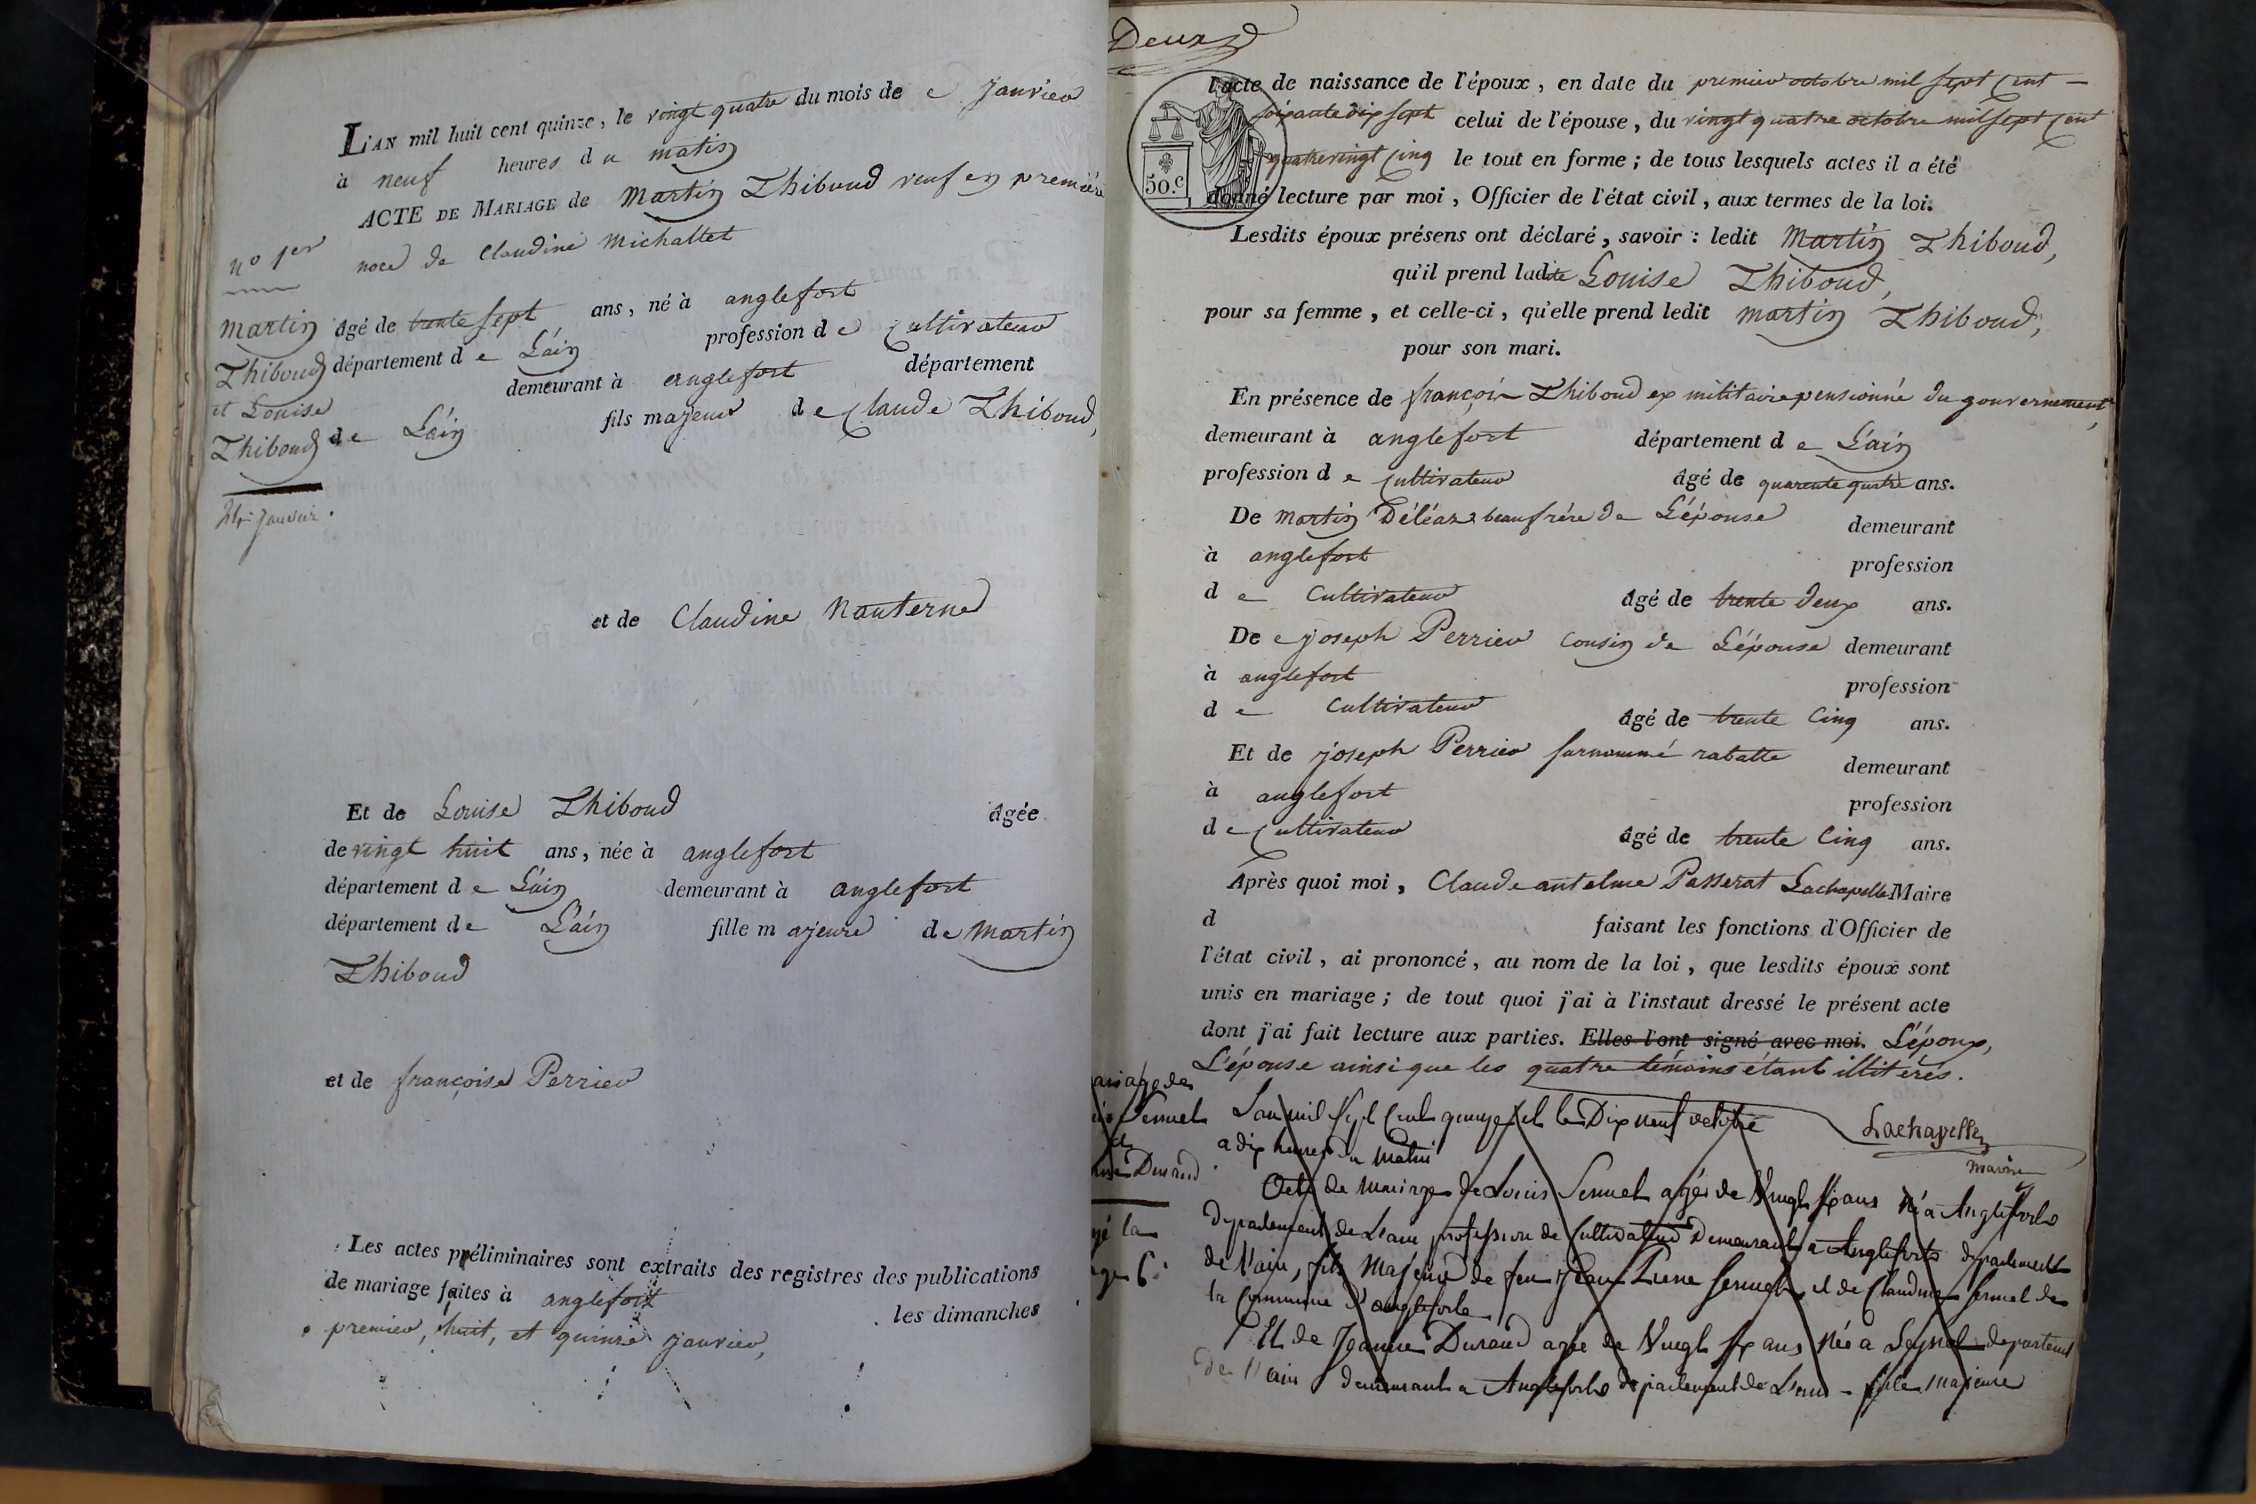 L'AN mil huit cent quinze, le vingt quatre du mois de janvier
à neuf heures du matin
ACTE DE MARIAGE de Martin Thiboud veuf en première
noce de Claudine Michallet
n° 1er
Martin
Thiboud
et Louise
Thiboud
24 janvier.
âgé de trente sept ans, né à anglefort
département de L'ain profession de Cultivateur
demeurant à anglefort département
de L'ain fils majeur de Claude Thiboud,
et de Claudine Nanterne
Et de Louise Thiboud âgée
de vingt huit ans, née à anglefort
département de L'ain demeurant à anglefort
département de L'ain fille majeure de Martin
Thiboud
et de françoise Perrier
Les actes préliminaires sont extraits des registres des publications
de mariage faites à anglefort les dimanches
premier, huit, et quinze janvier,
Deux
l'acte de naissance de l'époux, en date du premier octobre mil sept Cent
soixante dix sept celui de l'épouse, du vingt quatre octobre mil sept Cent
quatrevingt Cinq le tout en forme; de tous lesquels actes il a été
50.c
donné lecture par moi, Officier de l'état civil, aux termes de la loi.
Lesdits époux présens ont déclaré, savoir: ledit Martin Thiboud,
qu'il prend ladite Louise Thiboud,
pour sa femme, et celle-ci, qu'elle prend ledit martin Thiboud,
pour son mari.
En présence de françois Thiboud ex militaire pensionné du gouvernement,
demeurant à anglefort département de L'ain
profession de Cultivateur âgé de quarente quatre ans.
De martin Déléaz beaufrére de L'épouse demeurant
à anglefort profession
de Cultivateur âgé de trente deux ans.
De joseph Perrier Cousin de L'épouse demeurant
à anglefort profession
de Cultivateur âgé de trente Cinq ans.
Et de joseph Perrier surnommé rabatte demeurant
à anglefort profession
de Cultivateur âgé de trente Cinq ans.
Après quoi moi, Claude antelme Passerat Lachapelle Maire
d faisant les fonctions d'Officier de
l'état civil, ai prononcé, au nom de la loi, que lesdits époux sont
unis en mariage; de tout quoi j'ai à l'instaut dressé le présent acte
dont j'ai fait lecture aux parties. Elles l'ont signé avec moi. L'époux,
L'épouse ainsi que les quatre témoins étant illitérés.
Lachapelle
maire
ariage de
Semel
Durand
L'an mil sept Cent quinze et le Dix neuf octobre
a dix heures du Matin
Acte de Mariage de Louis Semel agé de Vingt six ans né a Anglefort
departement de L'ain profession de Cultivateur Demeurant a Anglefort departement
de l'ain, fils Majeur de feu Jean Semel et de Claudine Semel de
la Commune d'anglefort
Et de Jeanne Durand agée de Vingt six ans Née a Seyssel departement
de l'ain demeurant a Anglefort departement de L'ain fille Majeure